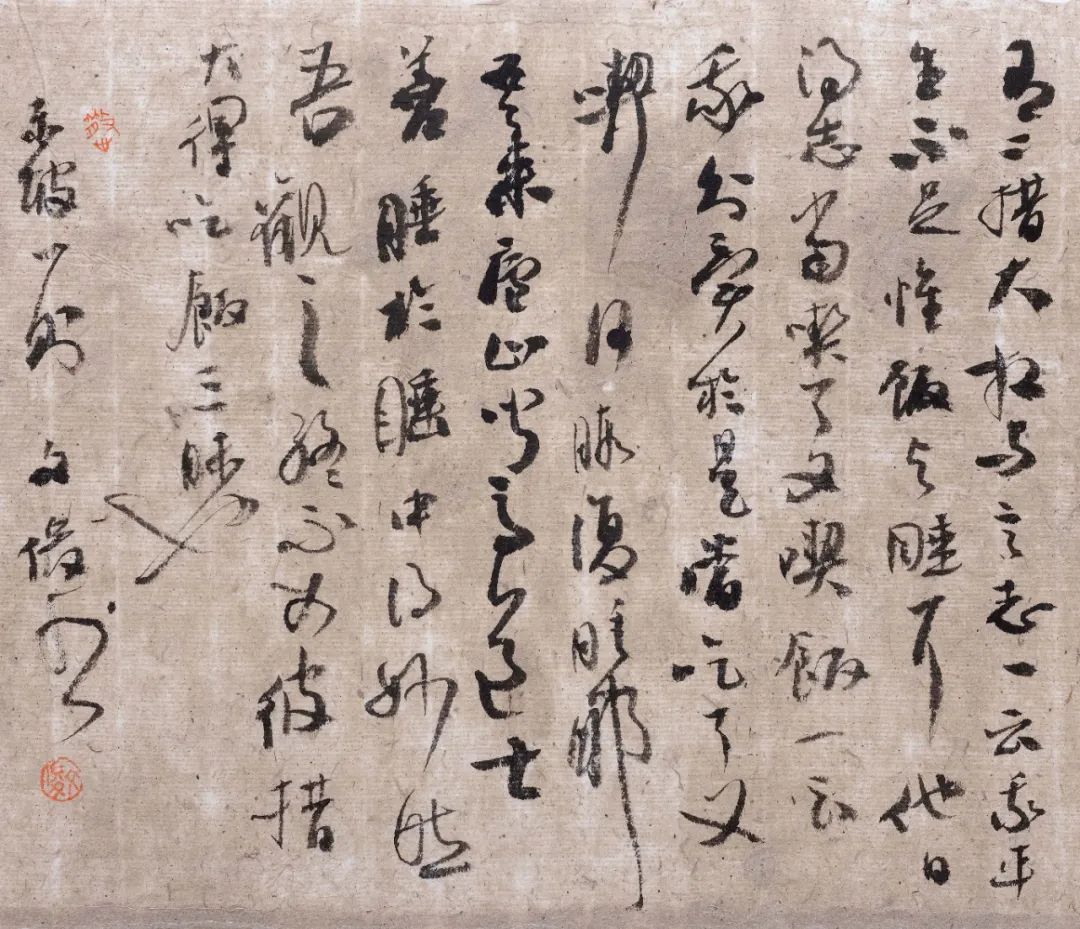 有二措大相与言志一云我平
生不足惟飯与睡耳他日
得志當喫了又喫飯一云
我則異於是當吃了又
喫何暇復睡耶
吾来廬山聞馬道士
善睡於睡中得妙然
吾觀之終不如彼措
大得吃飯三昧也
東坡一則 文俊